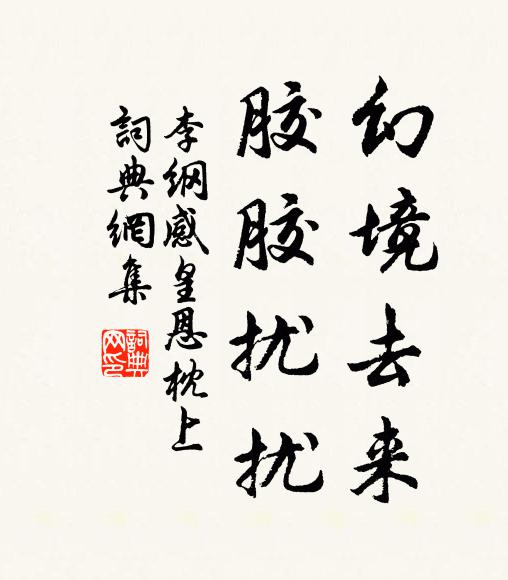 幻境去来
胶胶扰扰
李纲感皇恩枕上
詞典網集
詞典网印